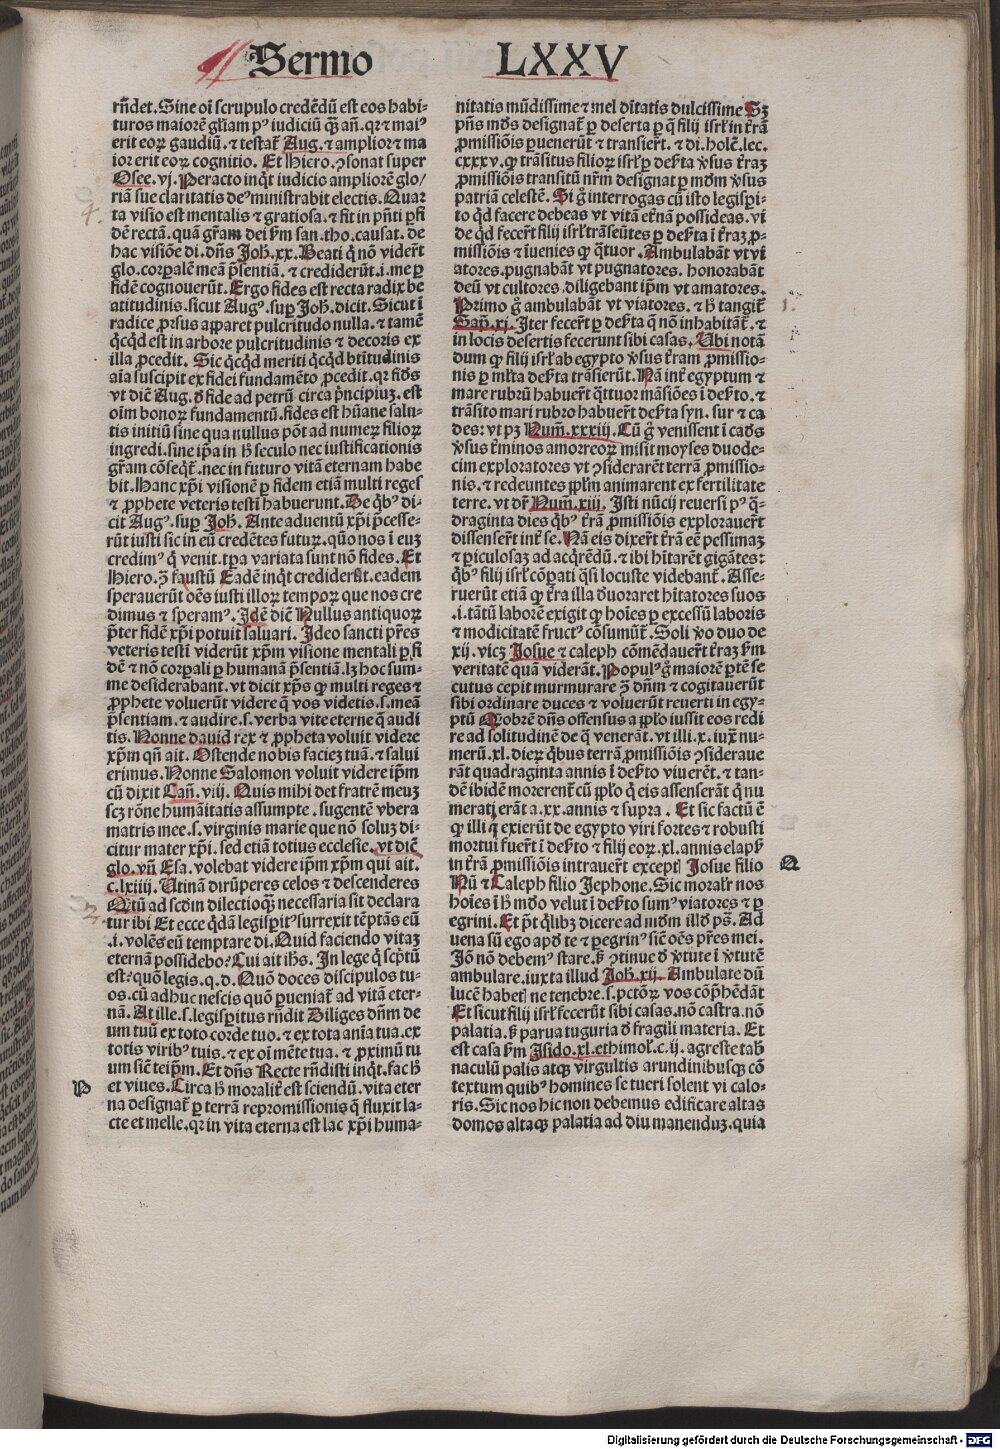 Sermo LXXV
rñdet. Sine oī scrupulo credēdū est eos habi-
turos maiorē gl̄iam pꝰ iudiciū q̄ꝫ añ. qꝛ ⁊ maiꝰ
erit eoꝝ gaudiū. ⁊ testat̄ Aug. ⁊ amplior ⁊ ma
ior erit eoꝝ cognitio. Et Hiero. ꝯsonat super
Osee. vj. Peracto inq̄t iudicio ampliorē glo/
riā sue claritatis deꝰministrabit electis. Quar
ta visio est mentalis ⁊ gratiosa. ⁊ fit in p̄nti ꝑ fi
dē rectā. quā gr̄am dei ẜm san. tho. causat. de
hac visiōe di. dñs Joh̄. xx. Beati q̄ nō viderūt
glo. corꝑalē meā p̄sentiā. ⁊ crediderūt .i. me ꝑ
fidē cognouerūt. Ergo fides est recta radix be
atitudinis. sicut Augꝰ. suꝑ Joh̄. dicit. Sicut ī
radice ꝓrsus apparet pulcritudo nulla. ⁊ tamē
q̄cq̄d est in arbore pulcritudinis ⁊ decoris ex
illa ꝓcedit. Sic q̄cq̄d meriti q̄cq̄d btītudinis
aīa suscipit ex fidei fundamēto ꝓcedit. qꝛ fids
vt dicē Aug. ꝺ fide ad petrū circa p̄ncipiuꝫ. est
oīm bonoꝝ fundamētū. fides est hūane salu-
tis initiū sine qua nullus pōt ad numeꝝ filioꝝ
ingredi. sine ip̄a in h̄ seculo nec iustificationis
gr̄am cōseq̄t̄. nec in futuro vitā eternam habe
bit. Hanc xp̄i visionē ꝑ fidem etiā multi reges
⁊ ꝓphete veteris testī habuerunt. De q̄bꝰ di-
cit Augꝰ. suꝑ Joh̄. Ante aduentū xp̄i p̄cesse-
rūt iusti sic in eū credētes futuꝝ. quō nos ī euꝫ
credimꝰ q̄ venit. tꝑa variata sunt nō fides. Et
Hiero. ꝯ̄ faustū Eadē inq̄t crediderūt. eadem
sperauerūt oēs iusti illoꝝ tempoꝝ que nos cre
dimus ⁊ speramꝰ. Idē dicē Nullus antiquoꝝ
p̄ter fidē xp̄i potuit saluari. Ideo sancti pr̄es
veteris testī viderūt xp̄m visione mentali ꝑ fi
dē ⁊ nō corꝑali ꝑ humanā p̄sentiā. lꝫ hoc sum-
me desiderabant. vt dicit xp̄s qꝫ multi reges ⁊
ꝓphete voluerūt videre q̄ vos videtis. s. meā
p̄sentiam. ⁊ audire. s. verba vite eterne q̄ audi
tis. Nonne dauid rex ⁊ ꝓpheta voluit videre
xp̄m qn̄ ait. Ostende nobis facieꝫ tuā. ⁊ salui
erimus. Nonne Salomon voluit videre ip̄m
cū dixit Cañ. viij. Quis mihi det fratrē meuꝫ
scꝫ rōne humāitatis assumpte. sugentē vbera
matris mee. s. virginis marie que nō soluꝫ di-
citur mater xp̄i. sed etiā totius ecclesie. vt dicē
glo. vñ Esa. volebat videre ip̄m xp̄m qui ait.
c. lxiiij. Utinā dirūperes celos ⁊ descenderes
Qtū ad scd̄m dilectioqꝫ necessaria sit declara
tur ibi Et ecce q̄dā legisꝑitꝰ surrexit tēptās eū
.i. volēs eū temptare di. Quid faciendo vitaꝫ
eternā possidebo? Cui ait ih̄s. In lege q̄ scp̄tū
est? quō legis. q. d. Quō doces discipulos tu-
os. cū adhuc nescis quō ꝑueniat̄ ad vitā eter-
nā. At ille. s. legisꝑitus rñdit Diliges dñm de
um tuū ex toto corde tuo. ⁊ ex tota aīa tua. ex
totis viribꝰ tuis. ⁊ ex oī mēte tua. ⁊ ꝓximū tu
um sicē teip̄m. Et dñs Recte rñdisti inq̄t. fac h̄
P et viues. Circa h̄ moralit̄ est sciendū. vita eter
na designat̄ ꝑ terrā repromissionis q̄ fluxit la-
cte et melle. qꝛ in vita eterna est lac xp̄i huma-
nitatis mūdissime ⁊ mel dītatis dulcissime Sꝫ
pñs mūds designat̄ ꝑ deserta ꝑ q̄ filij isrl̄ in t̄rā
ꝓmissiōis ꝑuenerūt ⁊ transiert̄. ⁊ di. holc̄. lec.
cxxxv. qꝫ trāsitus filioꝝ isrl̄ ꝑ deẜta v̄sus t̄raꝫ
ꝓmissiōis transitū nr̄m designat ꝑ mūdm v̄sus
patriam celestē. Si g̊ interrogas cū isto legisꝑi-
to q̄d facere debeas vt vitā et̄nā possideas. vi
de q̄d fecer̄t filij isrl̄ trāseūtes ꝑ deẜta ī t̄raꝫ ꝓ-
missiōis ⁊ īuenies qꝫ q̄tuor. Ambulabāt vt vi
atores. pugnabāt vt pugnatores. honorabāt
deū vt cultores. diligebant ip̄m vt amatores.
Primo g̊ ambulabāt vt viatores. ⁊ h̄ tangit̄
Sap̄. xj. Iter fecer̄t ꝑ deẜta q̄ nō inhabitāt̄. ⁊
in locis desertis fecerunt sibi casas. Ubi notā
dum qꝫ filij isrl̄ ab egypto v̄sus t̄ram ꝓmissio-
nis ꝑ ml̄ta deẜta trāsierūt. Nā int̄ egyptum ⁊
mare rubrū habuer̄t q̄ttuor māsiōes ī deẜto. ⁊
trāsito mari rubro habuer̄t deẜta syn. sur ⁊ ca
des: vt pꝫ Num̄. xxxiij. Cū g̊ venissent ī cads
v̄sus t̄minos amorreoꝝ misit moyses duode-
cim exploratores vt ꝯsiderarēt terrā ꝓmissio-
nis. ⁊ redeuntes pp̄lm animarent ex fertilitate
terre. vt dr̄ Num̄. xiij. Isti nūcij reuersi pꝰ q̄-
draginta dies q̄bꝰ t̄rā ꝓmissiōis explorauer̄t
dissenser̄t int̄ se. Nā eis dixer̄t t̄rā eē pessimaꝫ
⁊ ꝑiculosaꝫ ad acq̄rēdū. ⁊ ibi hītarēt gigātes:
q̄bꝰ filij isrl̄ cōꝑati q̄si locuste videbant̄. Asse-
ruerūt etiā qꝫ t̄ra illa ꝺuoraret hītatores suos
.i. tātū laborē exigit qꝫ hoīes ꝑ excessū laboris
⁊ modicitatē fructꝰ cōsumūt̄. Soli v̄o duo de
xij. vicꝫ Josue ⁊ caleph cōmēdauer̄t t̄raꝫ ẜm
veritatē quā viderāt. Populꝰ g̊ maiorē ꝑtē se
cutus cepit murmurare ꝯ̄ dñm ⁊ cogitauerūt
sibi ordinare duces ⁊ voluerūt reuerti in egy-
ptū Qmobrē dñs offensus a pp̄lo iussit eos redi
re ad solitudinē de q̄ venerāt. vt illi. x. iux̄ nu-
merū. xl. dieꝝ q̄bus terrā ꝓmissiōis ꝯsideraue
rāt quadraginta annis ī deẜto viuerēt. ⁊ tan-
dē ibidē morerent̄ cū pp̄lo q̄ eis assenserāt q̄ nu
merati erāt a. xx. annis ⁊ supra. Et sic factū ē
qꝫ illi q̄ exierūt de egypto viri fortes ⁊ robusti
mortui fuer̄t ī deẜto ⁊ filij eoꝝ. xl. annis elapẜ
in t̄rā ꝓmissiōis intrauer̄t exceptꝭ Josue filio Q
Nū ⁊ Caleph filio Jephone. Sic moralr̄ nos
hoīes ī h̄ mūdo velut ī deẜto sumꝰ viatores ⁊ ꝑ
egrini. Et p̄t q̄libꝫ dicere ad mūdm illd̄ pẜ. Ad
uena sū ego apd̄ te ⁊ ꝑegrinꝰ sicē oēs pr̄es mei.
Jō nō debemꝰ stare. ẜ ꝯtinue ꝺ v̄tute ī v̄tutē
ambulare. iuxta illud Joh̄. xij. Ambulate dū
lucē habetꝭ ne tenebre. s. pctōꝝ vos cōp̄hēdāt
Et sicut filij isrl̄ fecerūt sibi casas. nō castra. nō
palatia. ẜ parua tuguria ꝺ fragili materia. Et
est casa ẜm Isido. xl. ethimol̄. c. ij. agreste tab̄
naculū palis atqꝫ virgultis arundinibusqꝫ cō
textum quibꝰ homines se tueri solent vi calo-
ris. Sic nos hic non debemus edificare altas
domos altaqꝫ palatia ad diu manenduꝫ. quia
Digitalisierung gefördert durch die Deutsche Forschungsgemeinschaft - DFG